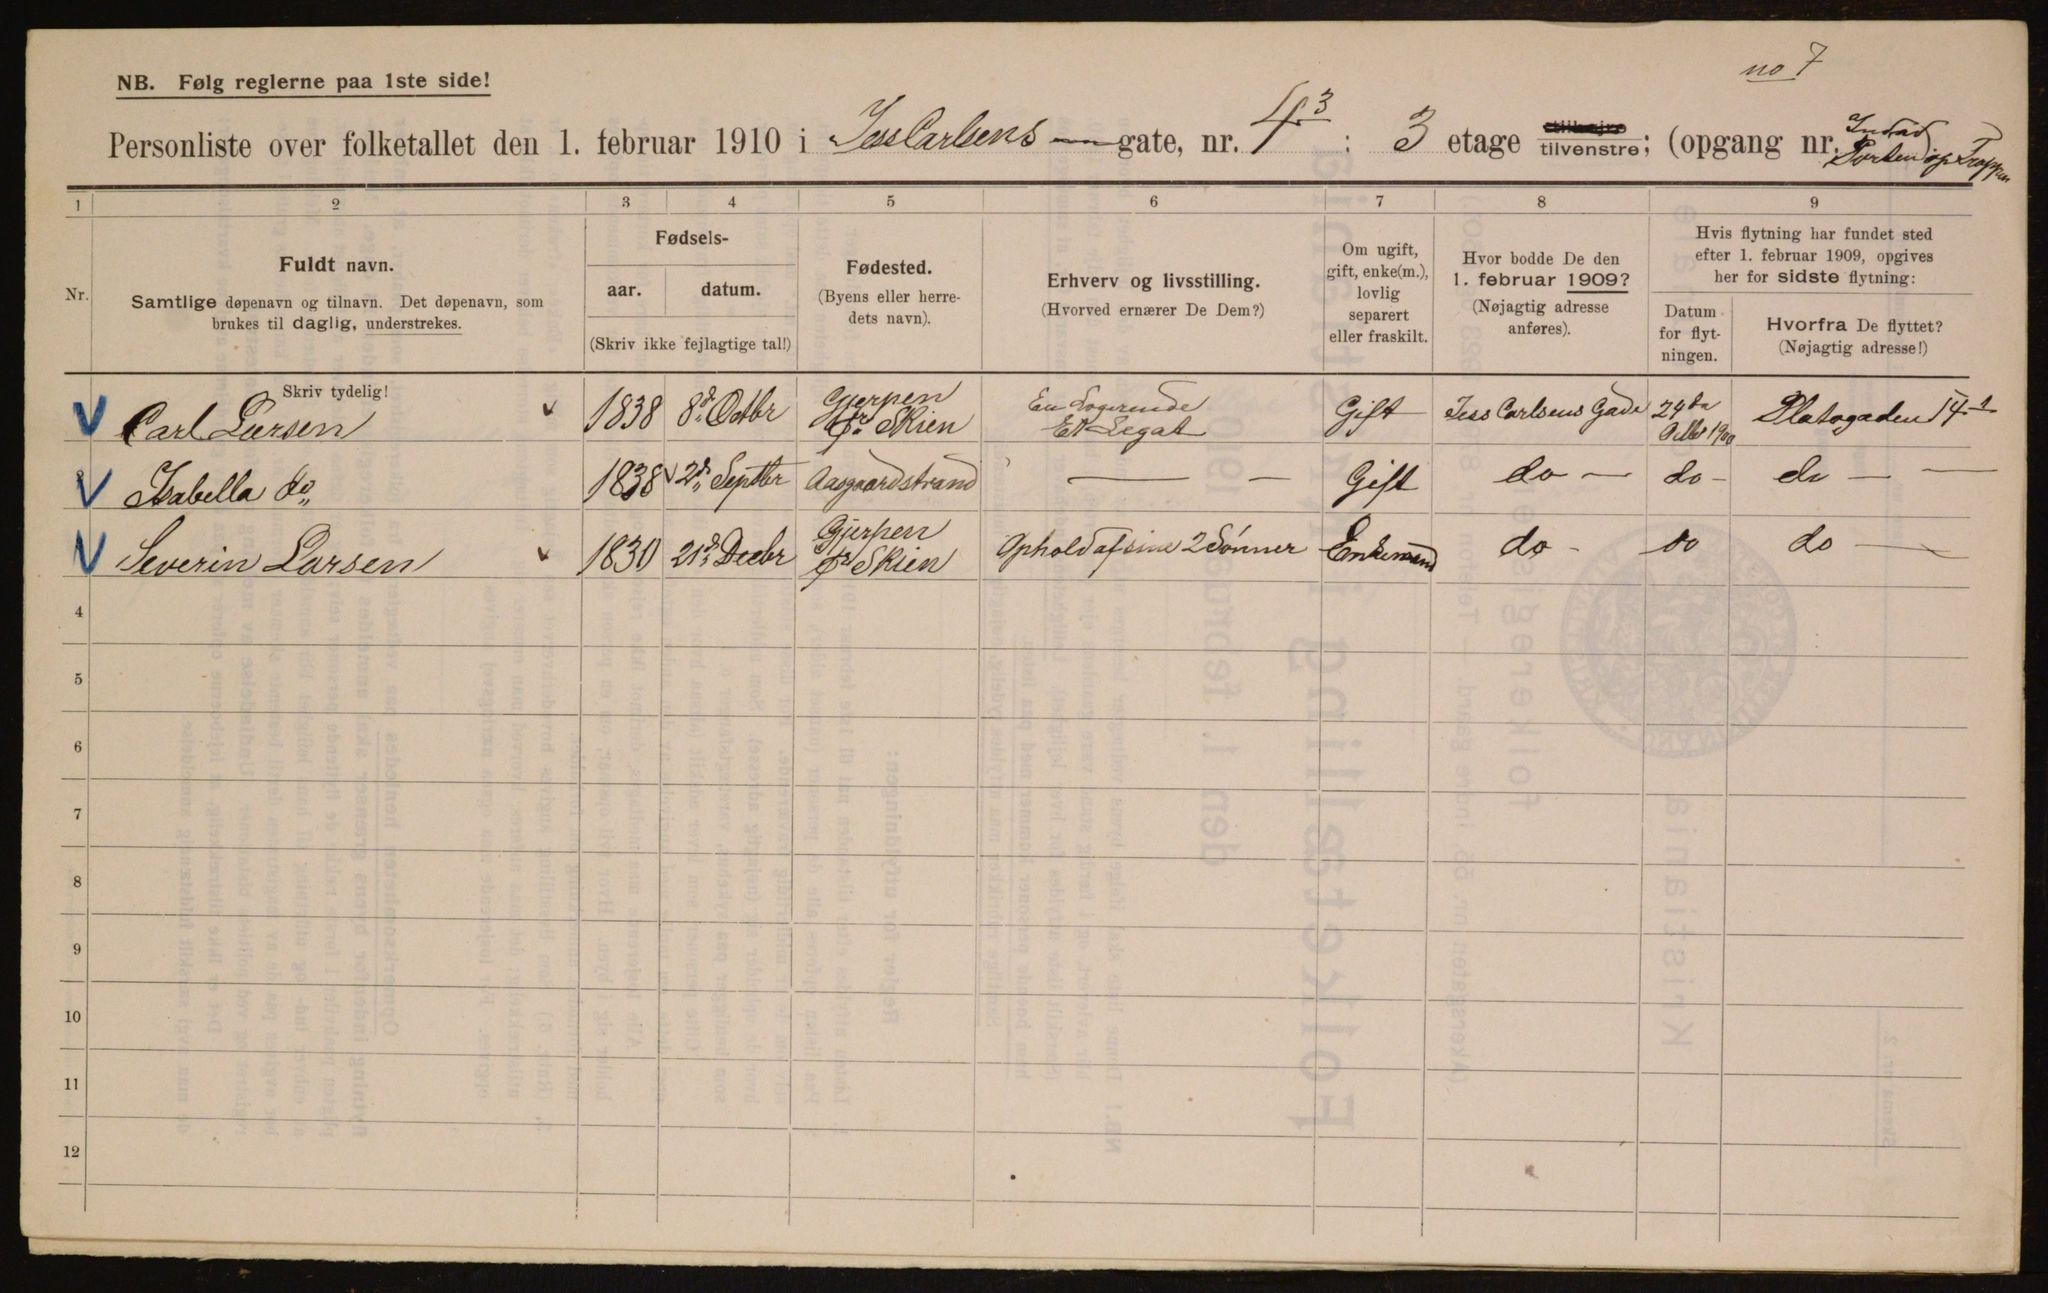 no 7
NB. Følg reglerne paa 1ste side!
Personliste over folketallet den 1. februar 1910 i Jess Carlsens gate, nr. 4 3 : 3 etage tilhøjre tilvenstre; (opgang nr. Indad Porten op Trappen
1 2 3 4 5 6 7 8 9
Nr.
Fuldt navn.
Samtlige døpenavn og tilnavn. Det døpenavn, som
brukes til daglig, understrekes.
Skriv tydelig!
Fødsels-
aar. datum.
(Skriv ikke fejlagtige tal!)
Fødested.
(Byens eller herre-
dets navn).
Erhverv og livsstilling.
(Hvorved ernærer De Dem?)
Om ugift,
gift, enke(m.),
lovlig
separert
eller fraskilt.
Hvor bodde De den
1. februar 1909?
(Nøjagtig adresse
anføres).
Hvis flytning har fundet sted
efter 1. februar 1909, opgives
her for sidste flytning:
Datum
for flyt-
ningen.
Hvorfra De flyttet?
(Nøjagtig adresse!)
Carl Larsen 1838 8d Octbr Gjerpen pr Skien En Logerende Et Legat Gift Jess Carlsens Gade 24da 1900 Platogaden 14
Isabella do 1838 2d Septbr Aasgaardstrand — — Gift do — do — do — —
Severin Larsen 1830 21d Decbr Gjerpen pr Skien Ophold af sine 2 Sönner Enkemand do - do do —
4
5
6
7
8
9
10
11
12